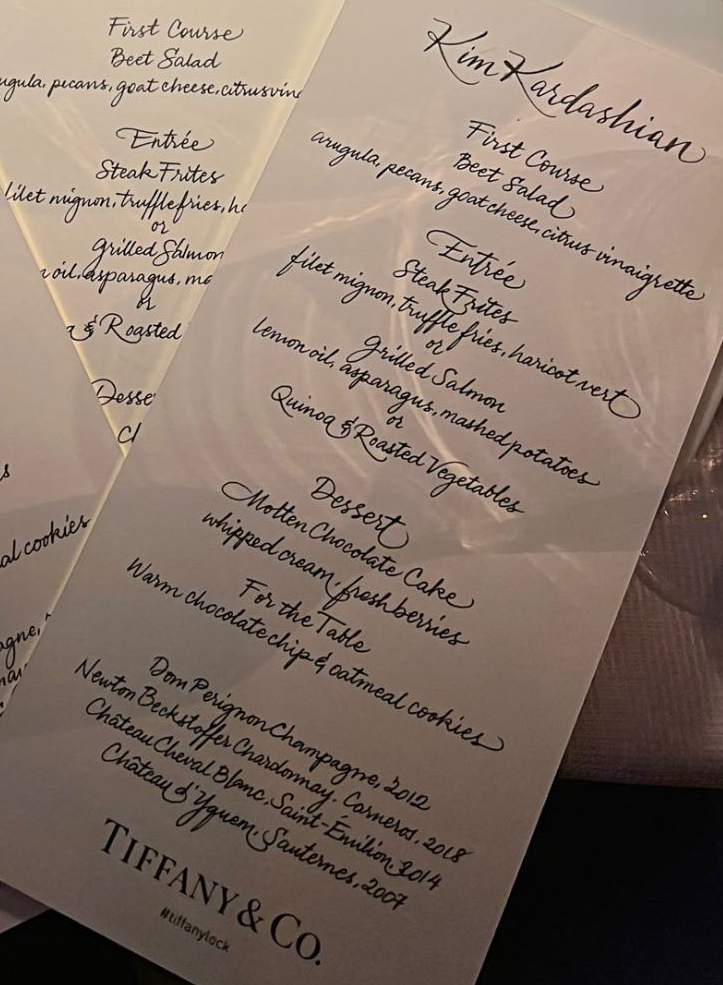 First Course
Beet Salad
ugula, pecans, goat cheese, citrus vin
Entrée
Steak Frites
filet mignon, truffle fries, h
or
Grilled Salmon
oil, asparagus, ma
or
& Roasted
Desse
al cookies
agne,
Kim Kardashian
First Course
Beet Salad
arugula, pecans, goat cheese, citrus vinaigrette
Entrée
Steak Frites
filet mignon, truffle fries, haricot vert
or
Grilled Salmon
lemon oil, asparagus, mashed potatoes
or
Quinoa & Roasted Vegetables
Dessert
Molten Chocolate Cake
whipped cream, fresh berries
For the Table
Warm chocolate chip & oatmeal cookies
Dom Perignon Champagne, 2012
Newton Beckstoffer Chardonnay. Carneros, 2018
Château Cheval Blanc, Saint-Émilion, 2014
Château d'Yquem, Sauternes, 2007
TIFFANY & CO.
#tiffanylock